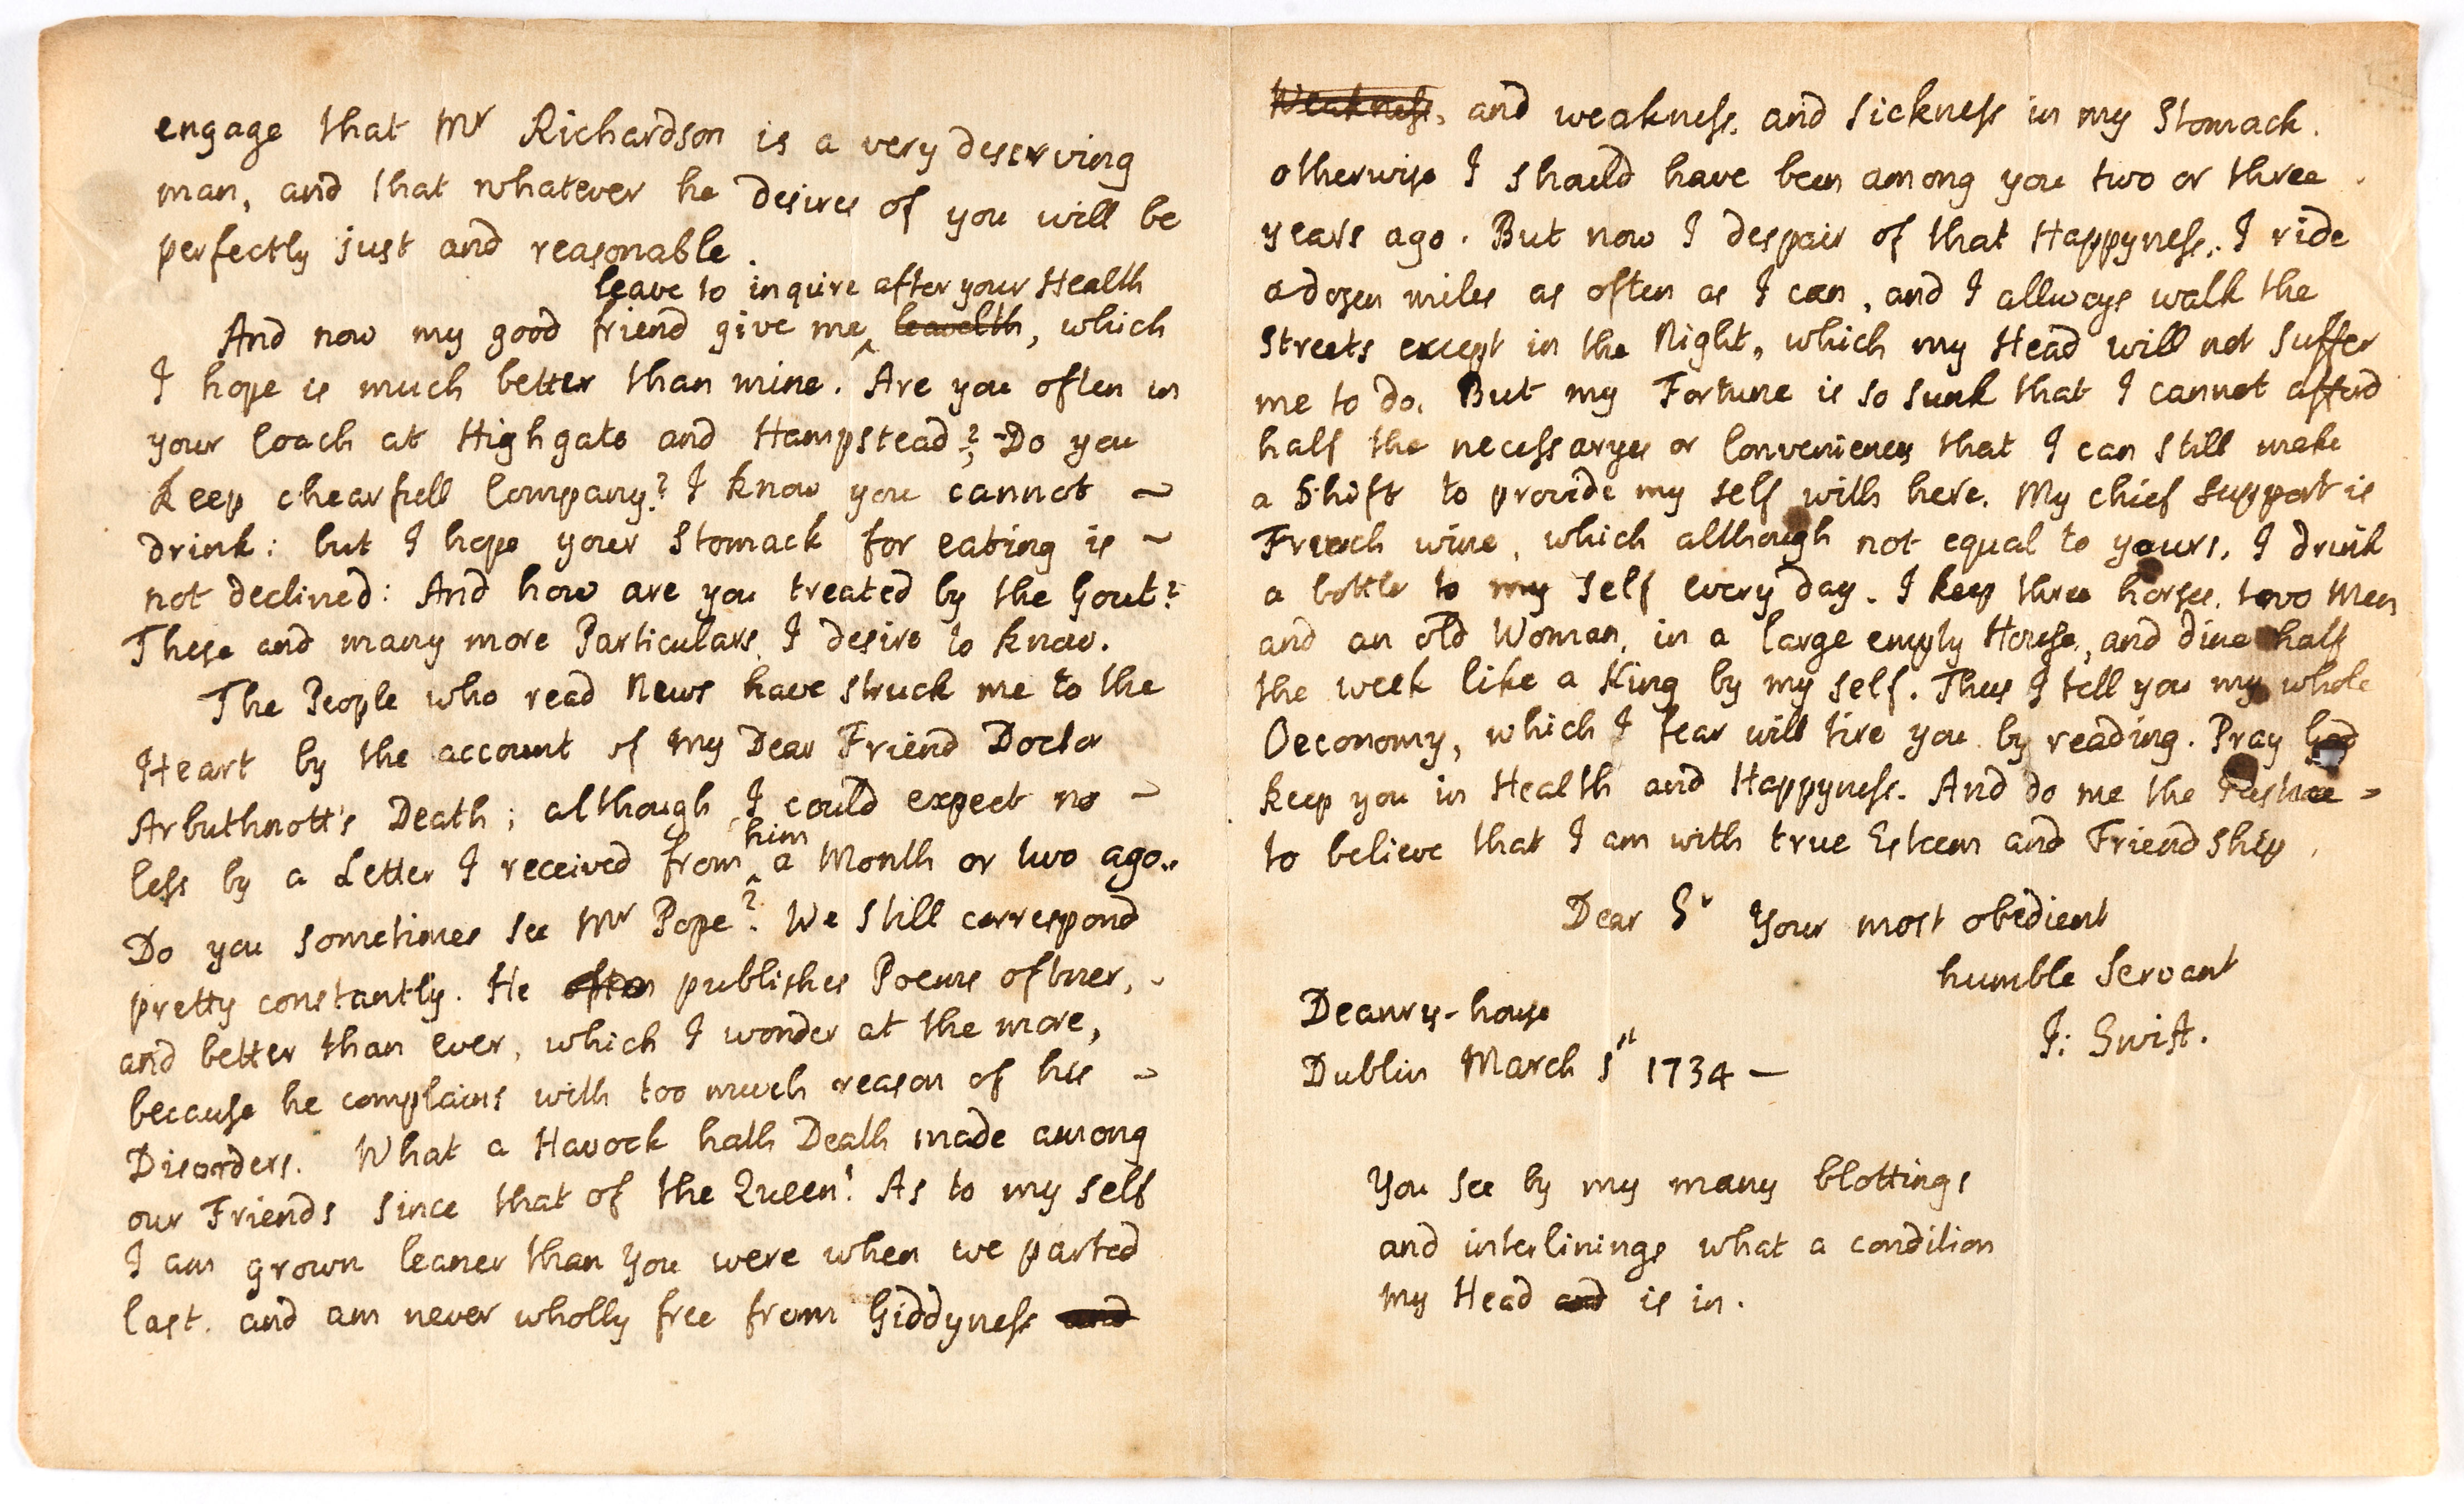 engage that Mr Richardson is a very deserving
man, and that whatever he desires of you will be
perfectly just and reasonable.
leave to inquire after your Health
And now my good friend give me ^ leavelth, which
I hope is much better than mine. Are you often in
your Coach at Highgate and Hampstead?; Do you
keep chearfull Company? I know you cannot ~
drink: but I hope your Stomack for eating is ~
not declined: And how are you treated by the Gout?
These and many more Particulars I desire to know.
The People who read News have struck me to the
Heart by the account of my Dear Friend Doctor
Arbuthnott's Death; although I could expect no ~
him
less by a Letter I received from ^ a Month or two ago.
Do you sometimes see Mr Pope? We still correspond
pretty constantly. He often publishes Poems oftner,
and better than ever, which I wonder at the more,
because he complains with too much reason of his ~
Disorders. What a Havock hath Death made among
our Friends since that of the Queen! As to my self
I am grown leaner than you were when we parted
last. and am never wholly free from Giddyness and
Weakness, and weakness, and sickness in my Stomack.
otherwise I should have been among you two or three
years ago. But now I despair of that Happyness. I ride
a dozen miles as often as I can, and I allways walk the
Streets except in the Night, which my Head will not suffer
me to do. But my Fortune is so sunk that I cannot afford
half the necessaryes or Conveniences that I can still make
a Shift to provide my self with here. My chief support is
French wine, which although not equal to yours, I drink
a bottle to my self every day. I keep three horses, two Men
and an old Woman, in a large empty House, and dine half
the week like a King by my self. Thus I tell you my whole
Oeconomy, which I fear will tire you by reading. Pray God
keep you in Health and Happyness. And do me the Justice -
to believe that I am with true Esteem and Friendship,
Dear Sr Your most obedient
humble Servant
J: Swift.
Deanry-house
Dublin March 1st 1734 —
You see by my many blottings
and interlinings what a condition
my Head and is in.